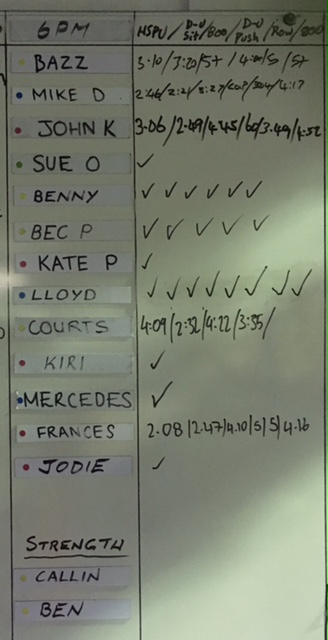 6PM HSPU / D-U Sit / 800 / D-U Push / Row / 800
BAZZ 3.10 / 3:20 / 5+ / 5 / 5+
MIKE D 2:46 / 2:21 / 4:17
JOHN K 3.06 / 2.49 / 4.45 / 60 / 3.49 / 4:52
SUE O ✓
BENNY ✓ ✓ ✓ ✓ ✓ ✓
BEC P ✓ ✓ ✓ ✓ ✓
KATE P ✓
LLOYD ✓ ✓ ✓ ✓ ✓ ✓ ✓
COURTS 4:09 / 2:32 / 4:22 / 3:35 /
KIRI ✓
MERCEDES ✓
FRANCES 2.08 | 2.47 | 4.10 | 5 | 5 | 4.16
JODIE ✓
STRENGTH
CALLIN
BEN